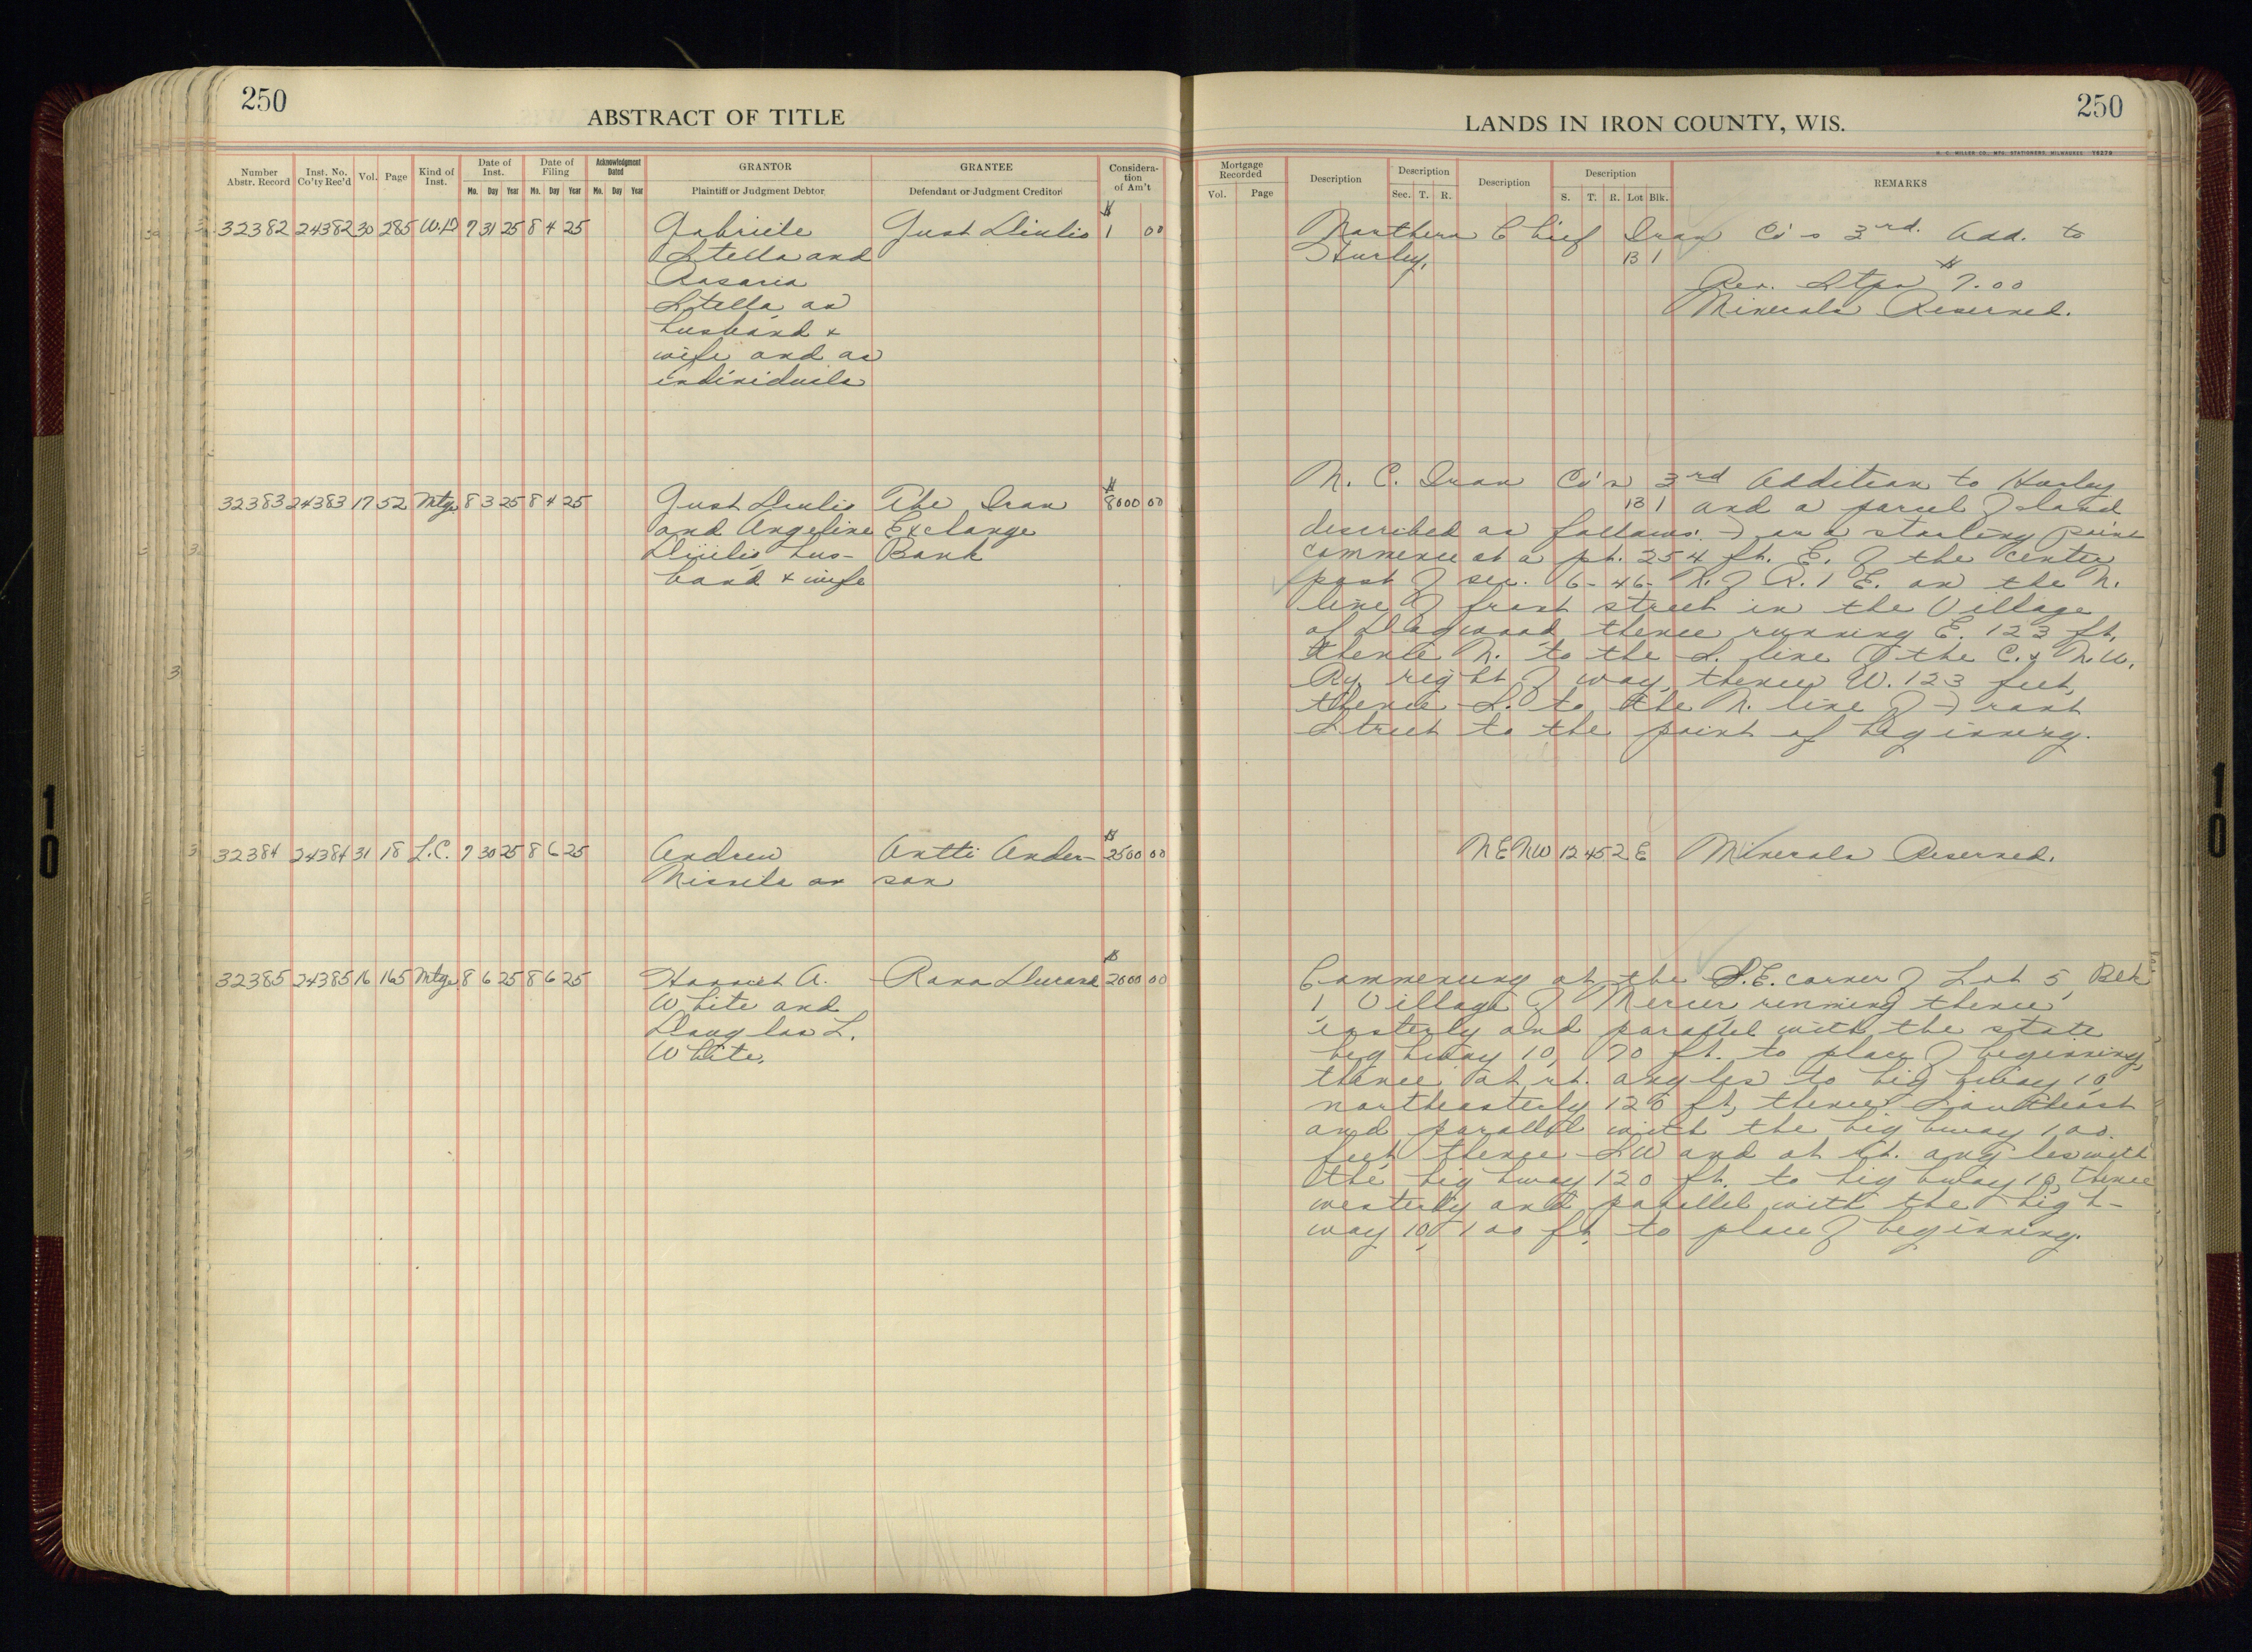 250
ABSTRACT OF TITLE
Number Abstr. Record
Inst. No. Co'ty Rec'd
Vol.
Page
Kind of Inst.
Date of Inst.
Mo. Day Year
Date of Filing
Mo. Day Year
Acknowledgment Dated
Mo. Day Year
GRANTOR
Plaintiff or Judgment Debtor
GRANTEE
Defendant or Judgment Creditor
Considera-
tion
of Am't
32382 24382 30 285 W.D 7 31 25 8 4 25 Gabriele Gust Diulio $ 1 00
Stella and
Rosaria
Stella as
husband &
wife and as
individuals
32383 24383 17 52 Mtg. 8 3 25 8 4 25 Gust Diulio The Iron $ 8000 00
and Angeline Exchange
Diulio, hus- Bank
band & wife
32384 24384 31 18 L.C. 7 30 25 8 6 25 Andrew Antti Ander- $ 2500 00
son
32385 24385 16 165 Mtg. 8 6 25 8 6 25 Harriet A. $ 2000 00
White and
Douglas L.
White.
250
LANDS IN IRON COUNTY, WIS.
H. C. MILLER CO., MFG. STATIONERS, MILWAUKEE
Mortgage Recorded
Vol. Page
Description
Description
Sec. T. R.
Description
Description
S. T. R. Lot Blk.
REMARKS
Northern Chief Iron Co's 3rd. Add. to
Hurley. 13 1
Rev. Stps $7.00
Minerals Reserved.
N. C. Iron Co's 3rd Addition to Hurley
13 1 and a parcel of land
described as follows: For a starting point
commence at a pt. 254 ft. E. of the center
post of sec. 6-46- N. of R. 1 E. on the N.
line of front street in the Village
of Dogwood thence running E. 123 ft.
thence N. to the S. line of the C. & N.W.
Ry. right of way, thence W. 123 feet,
thence S. to the N. line of Front
Street to the point of beginning.
NE NW 12 45 2E Minerals Reserved.
Commencing at the S.E. corner of Lot 5, Blk
1, Village of Mercer, running thence
easterly and parallel with the state
highway 10, 70 ft. to place of beginning,
thence at rt. angles to highway 10
northeasterly 120 ft, thence Southeast
and parallel with the highway 100
feet thence SW and at rt. angles with
the highway 120 ft. to highway 10, thence
westerly and parallel with the high-
way 10, 100 ft. to place of beginning.
10
10